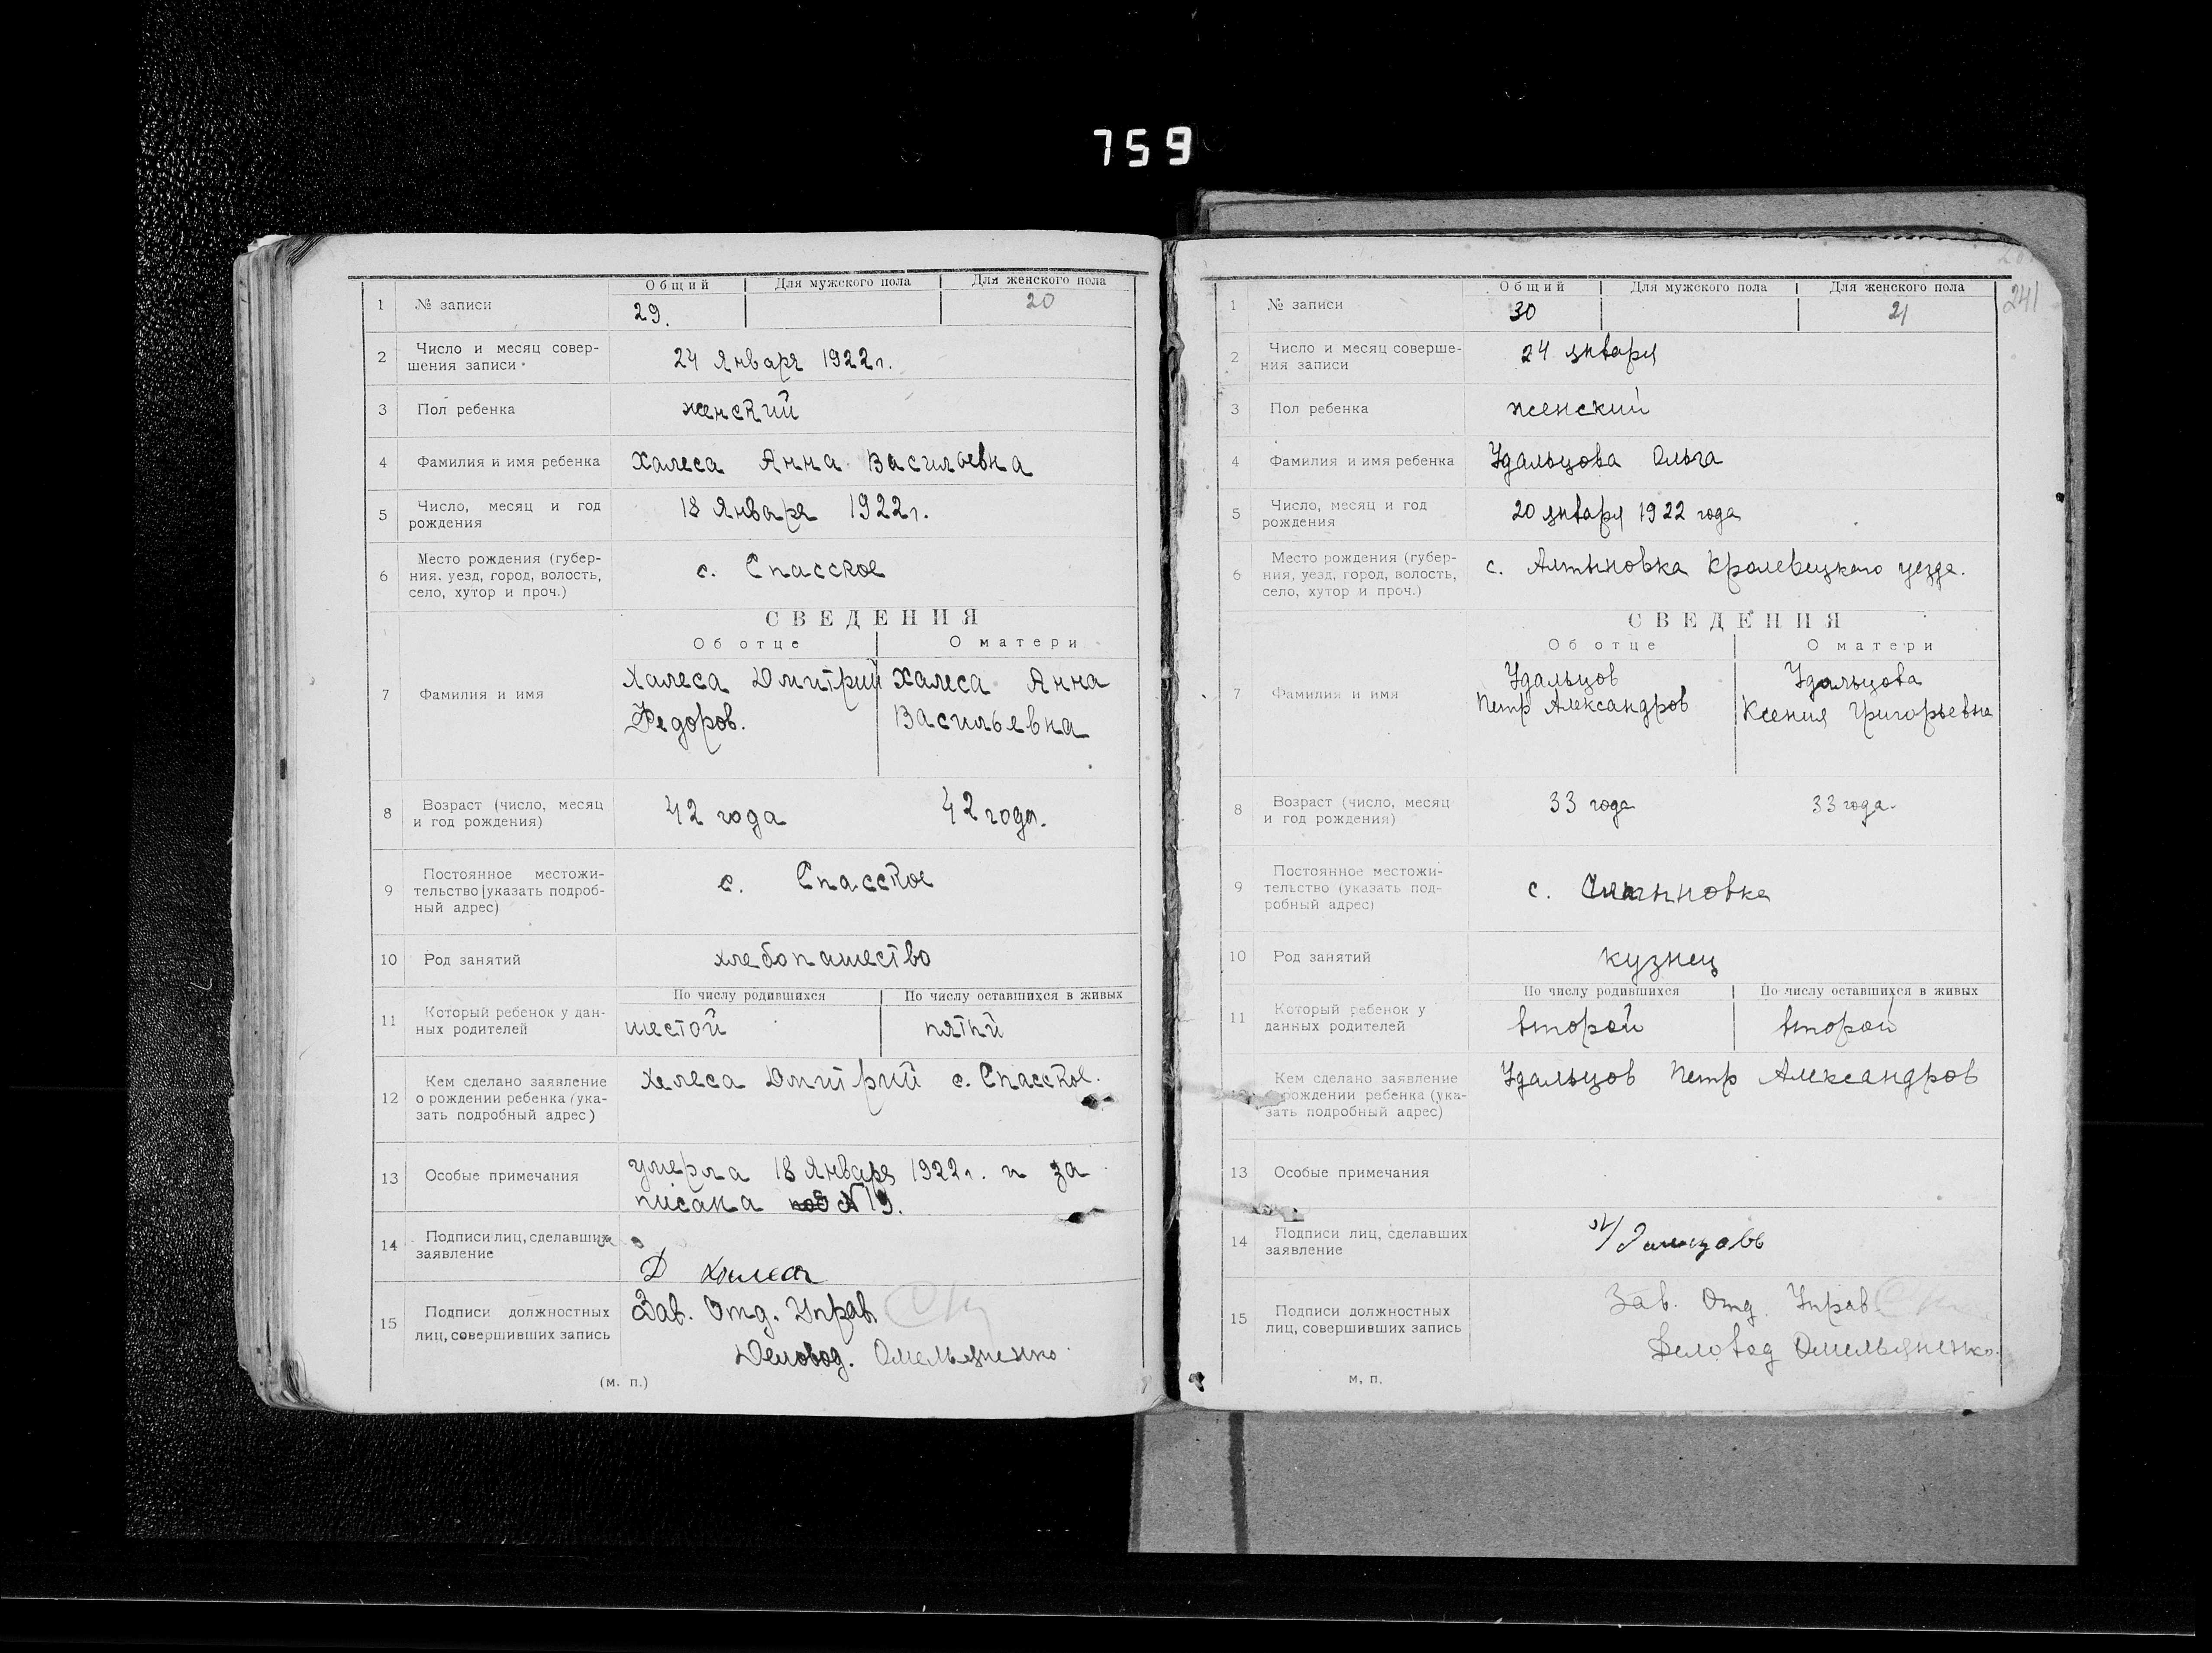 759
Общий Для мужского пола Для женского пола
1 № записи 29. 20
2 Число и месяц совер-
шения записи 24 Января 1922 г.
3 Пол ребенка женский
4 Фамилия и имя ребенка Халеса Анна Васильевна
5 Число, месяц и год
рождения 18 Января 1922 г.
6 Место рождения (губер-
ния, уезд, город, волость,
село, хутор и проч.) с. Спасское
СВЕДЕНИЯ
Об отце О матери
7 Фамилия и имя Халеса Дмитрий Халеса Анна
Федоров. Васильевна
8 Возраст (число, месяц
и год рождения) 42 года 42 года.
9 Постоянное местожи-
тельство (указать подроб-
ный адрес) с. Спасское
10 Род занятий хлебопашество
По числу родившихся По числу оставшихся в живых
11 Который ребенок у дан-
ных родителей шестой пятий
12 Кем сделано заявление
о рождении ребенка (ука-
зать подробный адрес) Халеса Дмитрий с. Спасское.
13 Особые примечания умерла 18 Января 1922 г. и за
писана № 19.
14 Подписи лиц, сделавших
заявление Д Халеса
15 Подписи должностных
лиц, совершивших запись Зав. Отд. Управ.
Деловод. Омельяненко
(м. п.)
241
Общий Для мужского пола Для женского пола
1 № записи 30 21
2 Число и месяц соверше-
ния записи 24 января
3 Пол ребенка женский
4 Фамилия и имя ребенка Удальцова Ольга
5 Число, месяц и год
рождения 20 января 1922 года
6 Место рождения (губер-
ния, уезд, город, волость,
село, хутор и проч.) с. Алтыновка Кролевецкого уезда.
СВЕДЕНИЯ
Об отце О матери
7 Фамилия и имя Удальцов Удальцова
Петр Александров Ксения Григорьевна
8 Возраст (число, месяц
и год рождения) 33 года 33 года.
9 Постоянное местожи-
тельство (указать под-
робный адрес) с. Алтыновка
10 Род занятий кузнец
По числу родившихся По числу оставшихся в живых
11 Который ребенок у
данных родителей второй второй
12 Кем сделано заявление
о рождении ребенка (ука-
зать подробный адрес) Удальцов Петр Александров
13 Особые примечания
14 Подписи лиц, сделавших
заявление
15 Подписи должностных
лиц, совершивших запись Зав. Отд. Управ.
Деловод Омельяненко.
м. п.